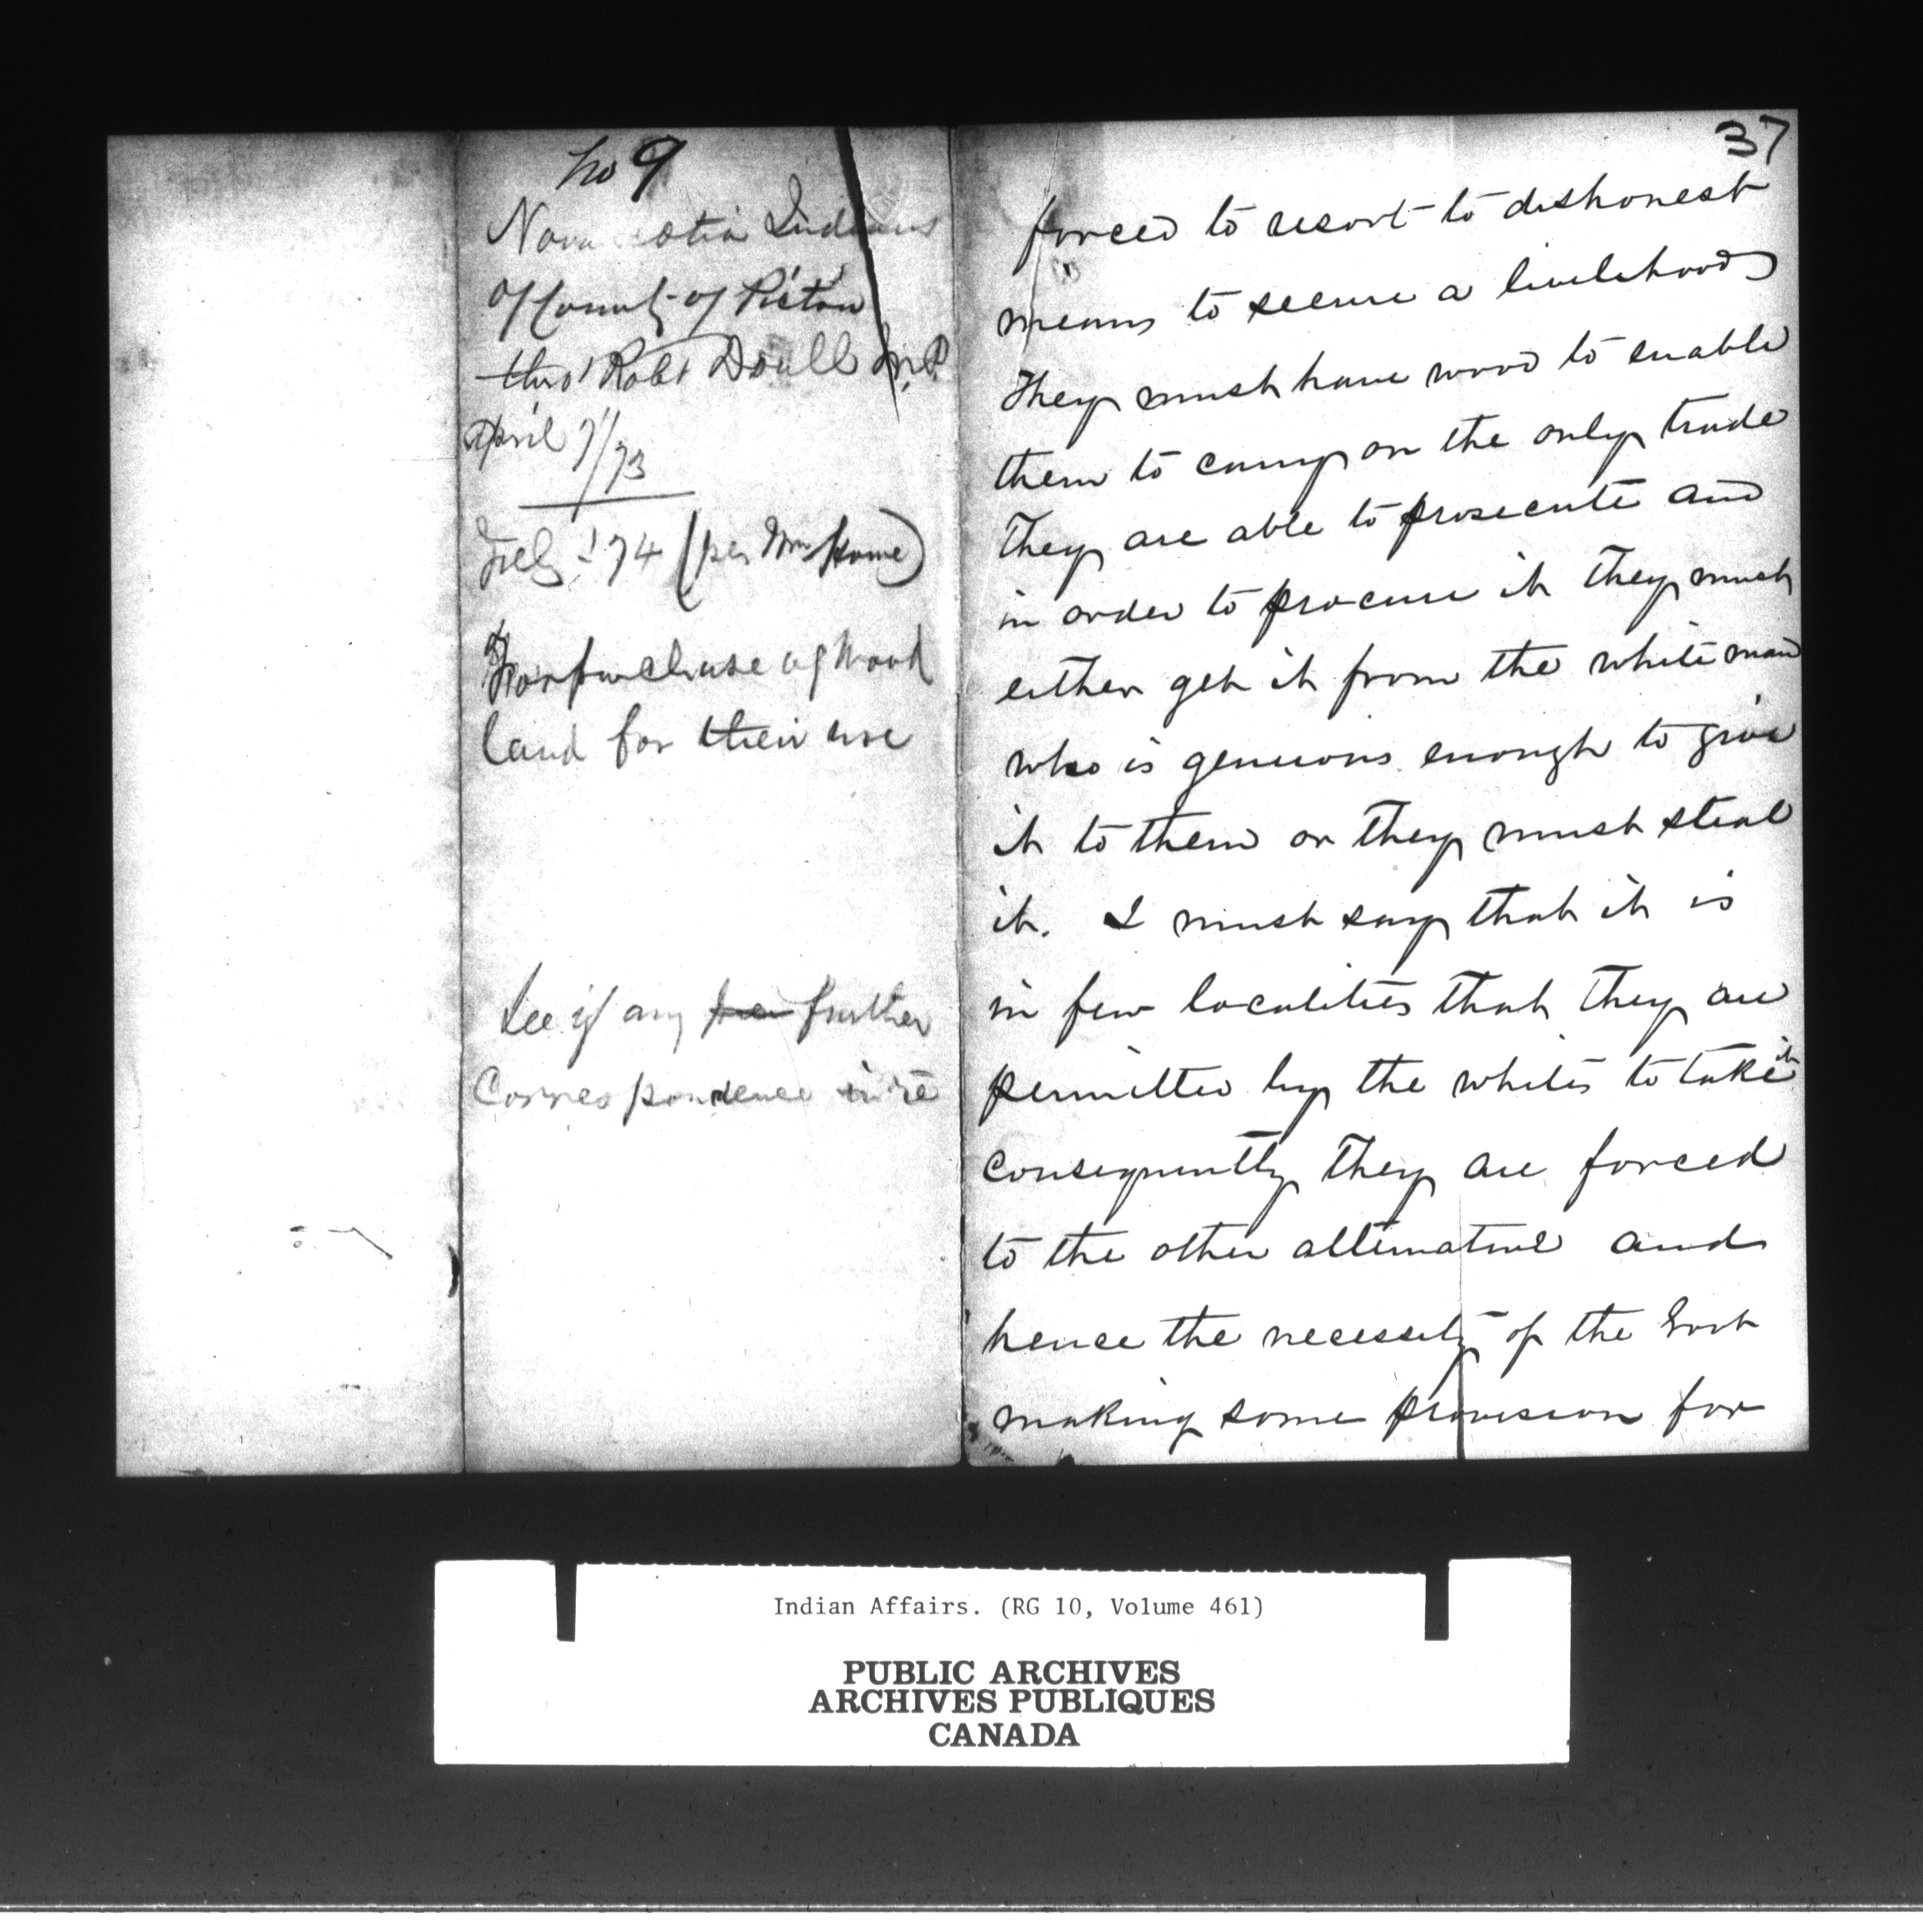 No 9
Nova Scotia Indians
of County of Pictou
thro' Robt Doull M.P.
April 7/73
Feby '74 (per Mr Howe)
For purchase of Wood
land for their use
See if any further
Correspondence in re
37
forced to resort to dishonest
means to secure a livelihood
They must have wood to enable
them to carry on the only trade
They are able to prosecute and
in order to procure it they must
either get it from the white man
who is generous enough to give
it to them or they must steal
it. I must say that it is
in few localities that they are
permitted by the whites to take it
consequently they are forced
to the other alternative and
hence the necessity of the Govt
making some provision for
Indian Affairs. (RG 10, Volume 461)
PUBLIC ARCHIVES
ARCHIVES PUBLIQUES
CANADA